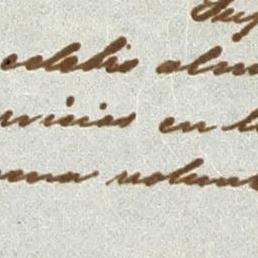 Sup
celebró alm
rvicios en l
ena volunt